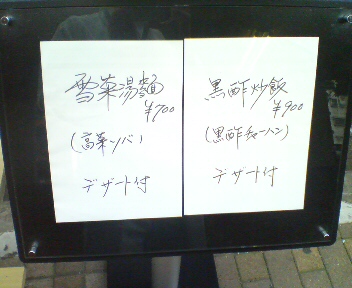 雪菜湯麺
¥700
(高菜ソバ)
デザート付
黒酢炒飯
¥900
(黒酢チャーハン)
デザート付